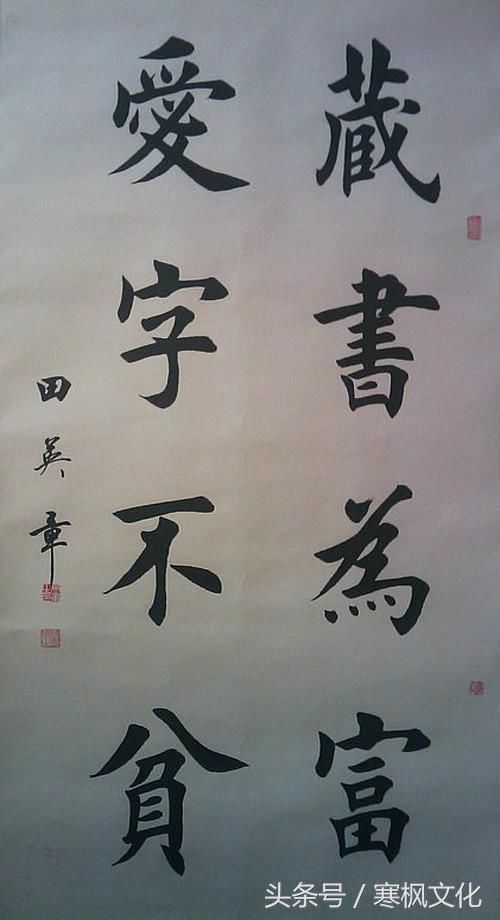 藏書為富
愛字不貧
田英章
头条号 / 寒枫文化